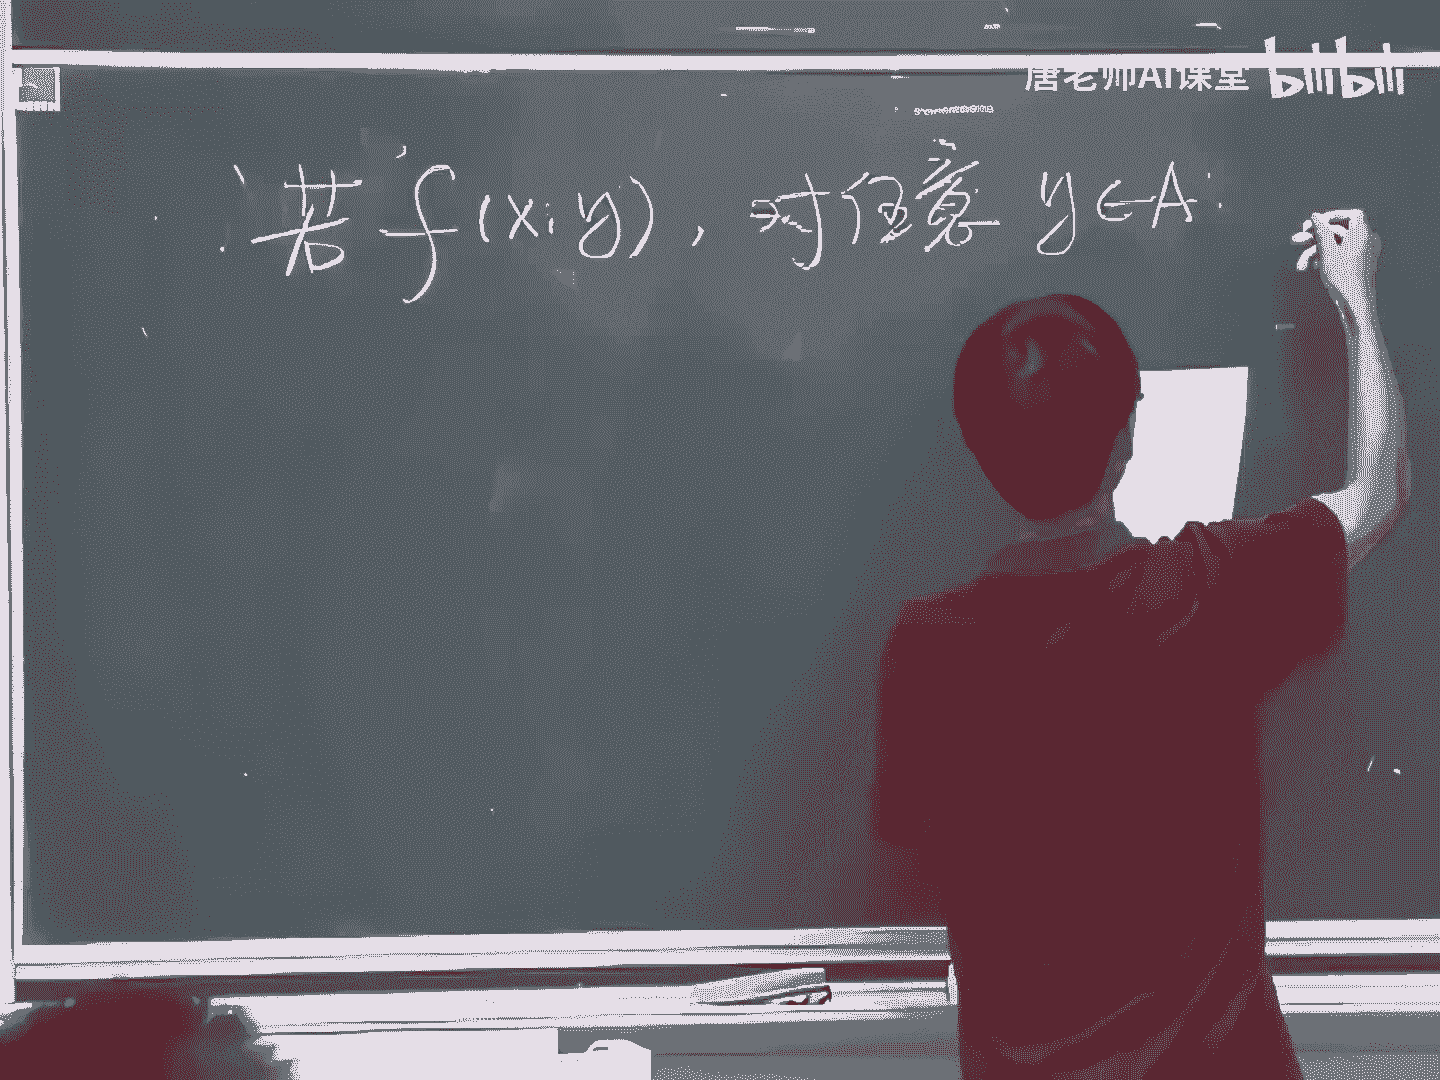 唐老师AI课堂 bilibili
若 f(x,y), 对任意 y∈A